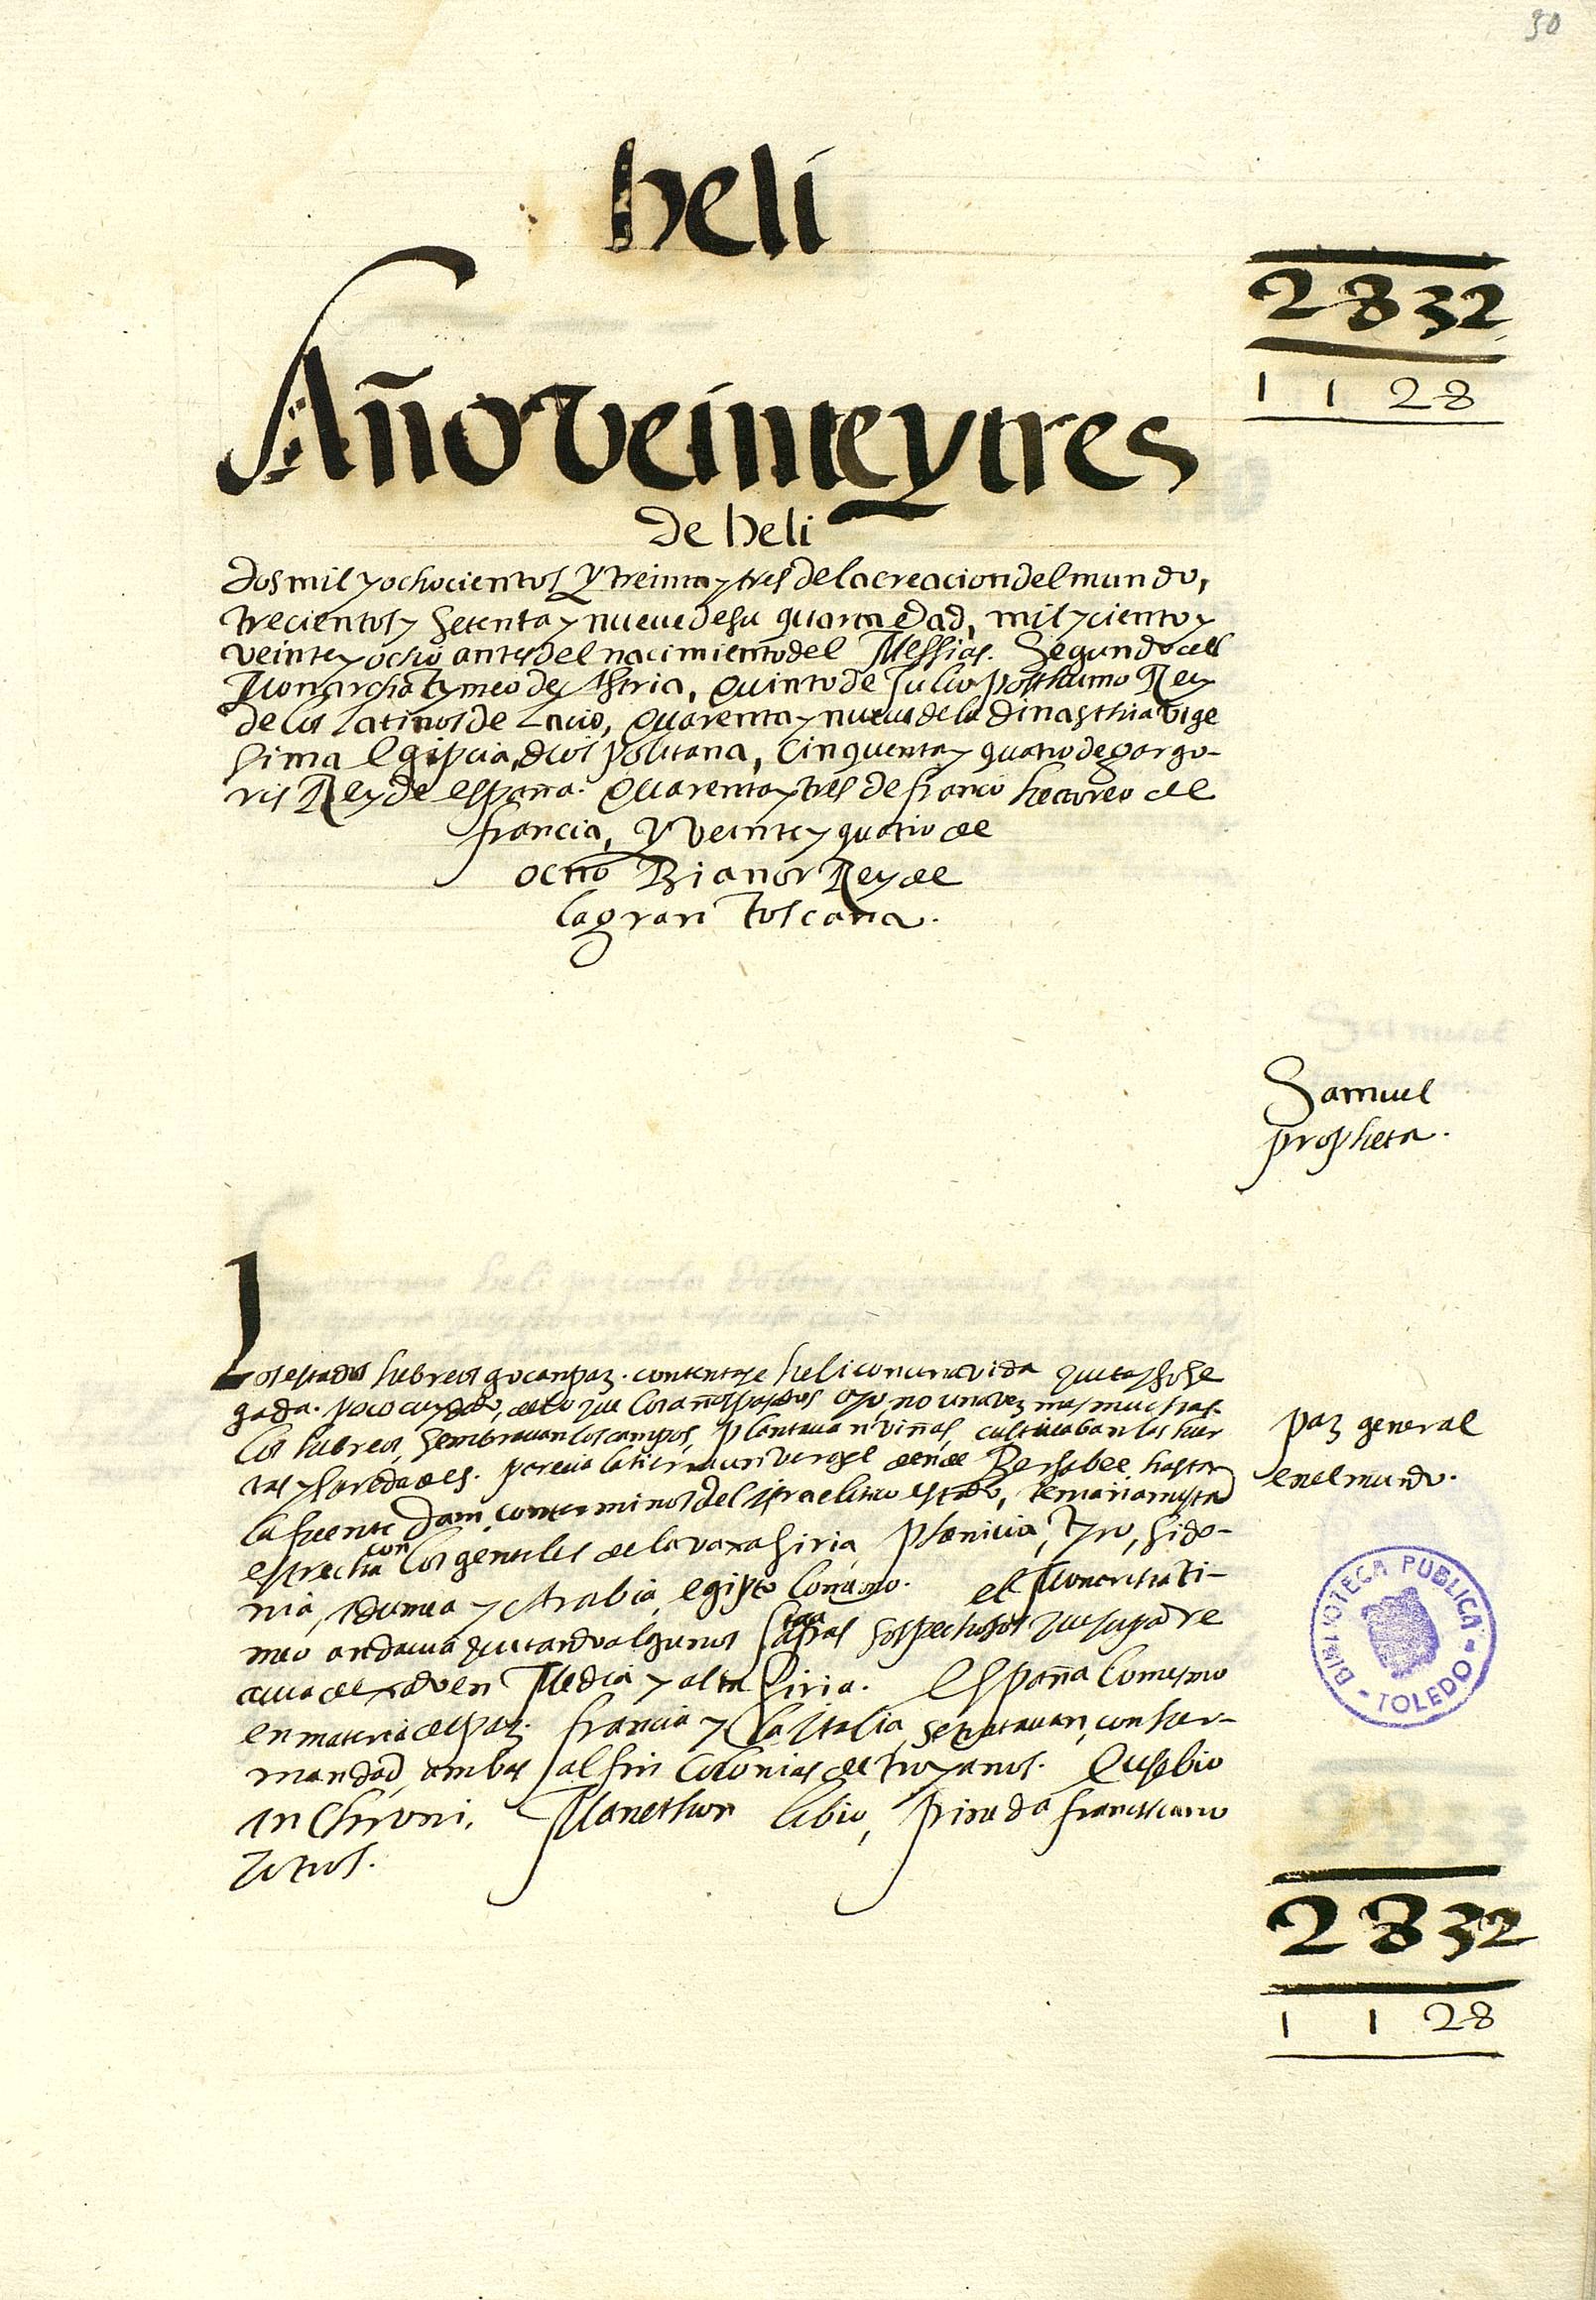 30
heli
2832
1128
Año veinte y tres
de heli
dos mil y ochocientos y treinta y tres de la creacion del mundo,
trecientos y setenta y nueue de su quarta edad, mil y ciento y
veinte y ocho antes del nacimiento del Messias. Segundo del
Monarcha tymeo de Asiria, quinto de Julio posthumo Rey
de los latinos de Lacio, quarenta y nueue de la dinasthia vige
sima Egipcia, diospolitana, cinquenta y quatro de gargo-
ris Rey de españa. quarenta y tres de franco hectoreo de
francia, y veinte y quatro de
ocno Bianor Rey de
la gran toscana.
Samuel
propheta.
Los estados hebreos goçan paz. contentase heli con una vida quieta y sose
gada. poco cuydado, de lo que los años passados oyo, no una vez mas muchas.
los hebreos, sembrauan los campos, plantauan viñas, cultiuaban las huer
tas y heredades. parecia la tierra un vergel dende Bersabee hasta
la fuente Dam, conterminos del israelitico estado, tenian amistad
estrecha con los gentiles de la vaxa Siria, Phœnicia, Tyro, Sido-
nia, idumea y Arabia, egipto lo mismo. el Monarcha ti-
meo andaua quitando algunos Satrapas sospechosos que su padre
auia dexado en Media y alta Siria. España lo mesmo
en materia de paz. francia y la italia se tratauan, con her-
mandad, ambas al fin colonias de troyanos. Eusebio
in Chroni. Manethon libio, pineda franciscano
y otros.
paz general
en el mundo.
BIBLIOTECA PUBLICA
TOLEDO
2832
1128